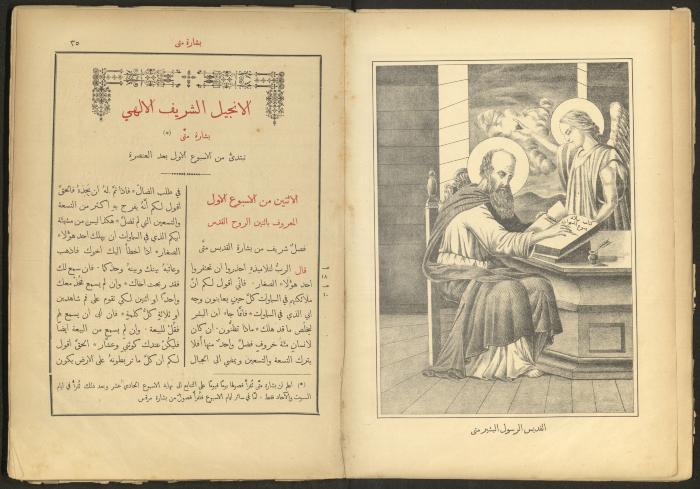 القديس الرسول البشير متى
بشارة متى
٣٥
الانجيل الشريف الالهي
بشارة متّى (*)
تبتدئ من الاسبوع الاول بعد العنصرة
الاثنين من الاسبوع الاول
المعروف باثنين الروح القدس
فصل شريف من بشارة القديس متى
قال الربُّ لتلاميذهِ احذروا ان تحتقروا
احد هؤُلاء الصغار. فاني اقول لكم انَّ
ملائكتهم في السماوات كلَّ حين يعاينون وجه
ابي الذي في السماوات * فانما جاء ابن البشر
ليخلّص ما قد هلك * ماذا تظنُّون. ان كان
لانسان مئة خروف فضلَّ واحدٌ منها أفلا
يترك التسعة والتسعين ويمضي الى الجبال
في طلب الضالّ * فاذا تمَّ لهُ ان يجدهُ فالحقَّ
اقول لكم انَّهُ يفرح بهِ اكثر من التسعة
والتسعين التي لم تضلَّ * هكذا ليس من مشيئة
ابيكم الذي في السماوات ان يهلك احد هؤُلاء
الصغار * اذا اخطأَ اليك اخوك فاذهب
وعاتبهُ بينك وبينهُ وحدكما. فان سمع لك
فقد ربحت اخاك * وان لم يسمع فخذ معك
واحدًا او اثنين لكي تقوم على فم شاهدين
او ثلاثةٍ كلُّ كلمةٍ * فان ابى ان يسمع لهم
فقُلْ للبيعة. وان لم يسمع من البيعة ايضًا
فليكنْ عندك كوثنيّ وعشّار * الحقَّ اقول
لكم ان كلَّ ما تربطونهُ على الارض يكون
(*) اعلم ان بشارة متّى تُقرأ فصولها يوميًا على التتابع الى نهاية الاسبوع الحادي عشر وبعد ذلك تُقرأ في ايام
السبت والآحاد فقط. امّا في سائر ايام الاسبوع فتُقرأ فصول من بشارة مرقس